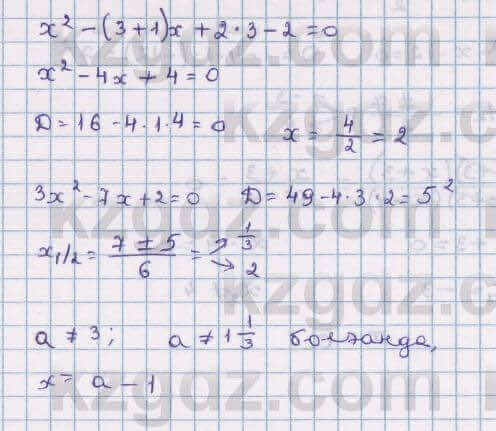 x² - (3+1)x + 2·3 - 2 = 0
x² - 4x + 4 = 0
Д = 16 - 4·1·4 = 0    x = 4/2 = 2
3x² - 7x + 2 = 0    Д = 49 - 4·3·2 = 5²
x₁/₂ = (7 ± 5)/6 = ↗ 1/3 ↘ 2
a ≠ 3;    a ≠ 1 1/3 болғанда,
x = a - 1
kzgdz.com